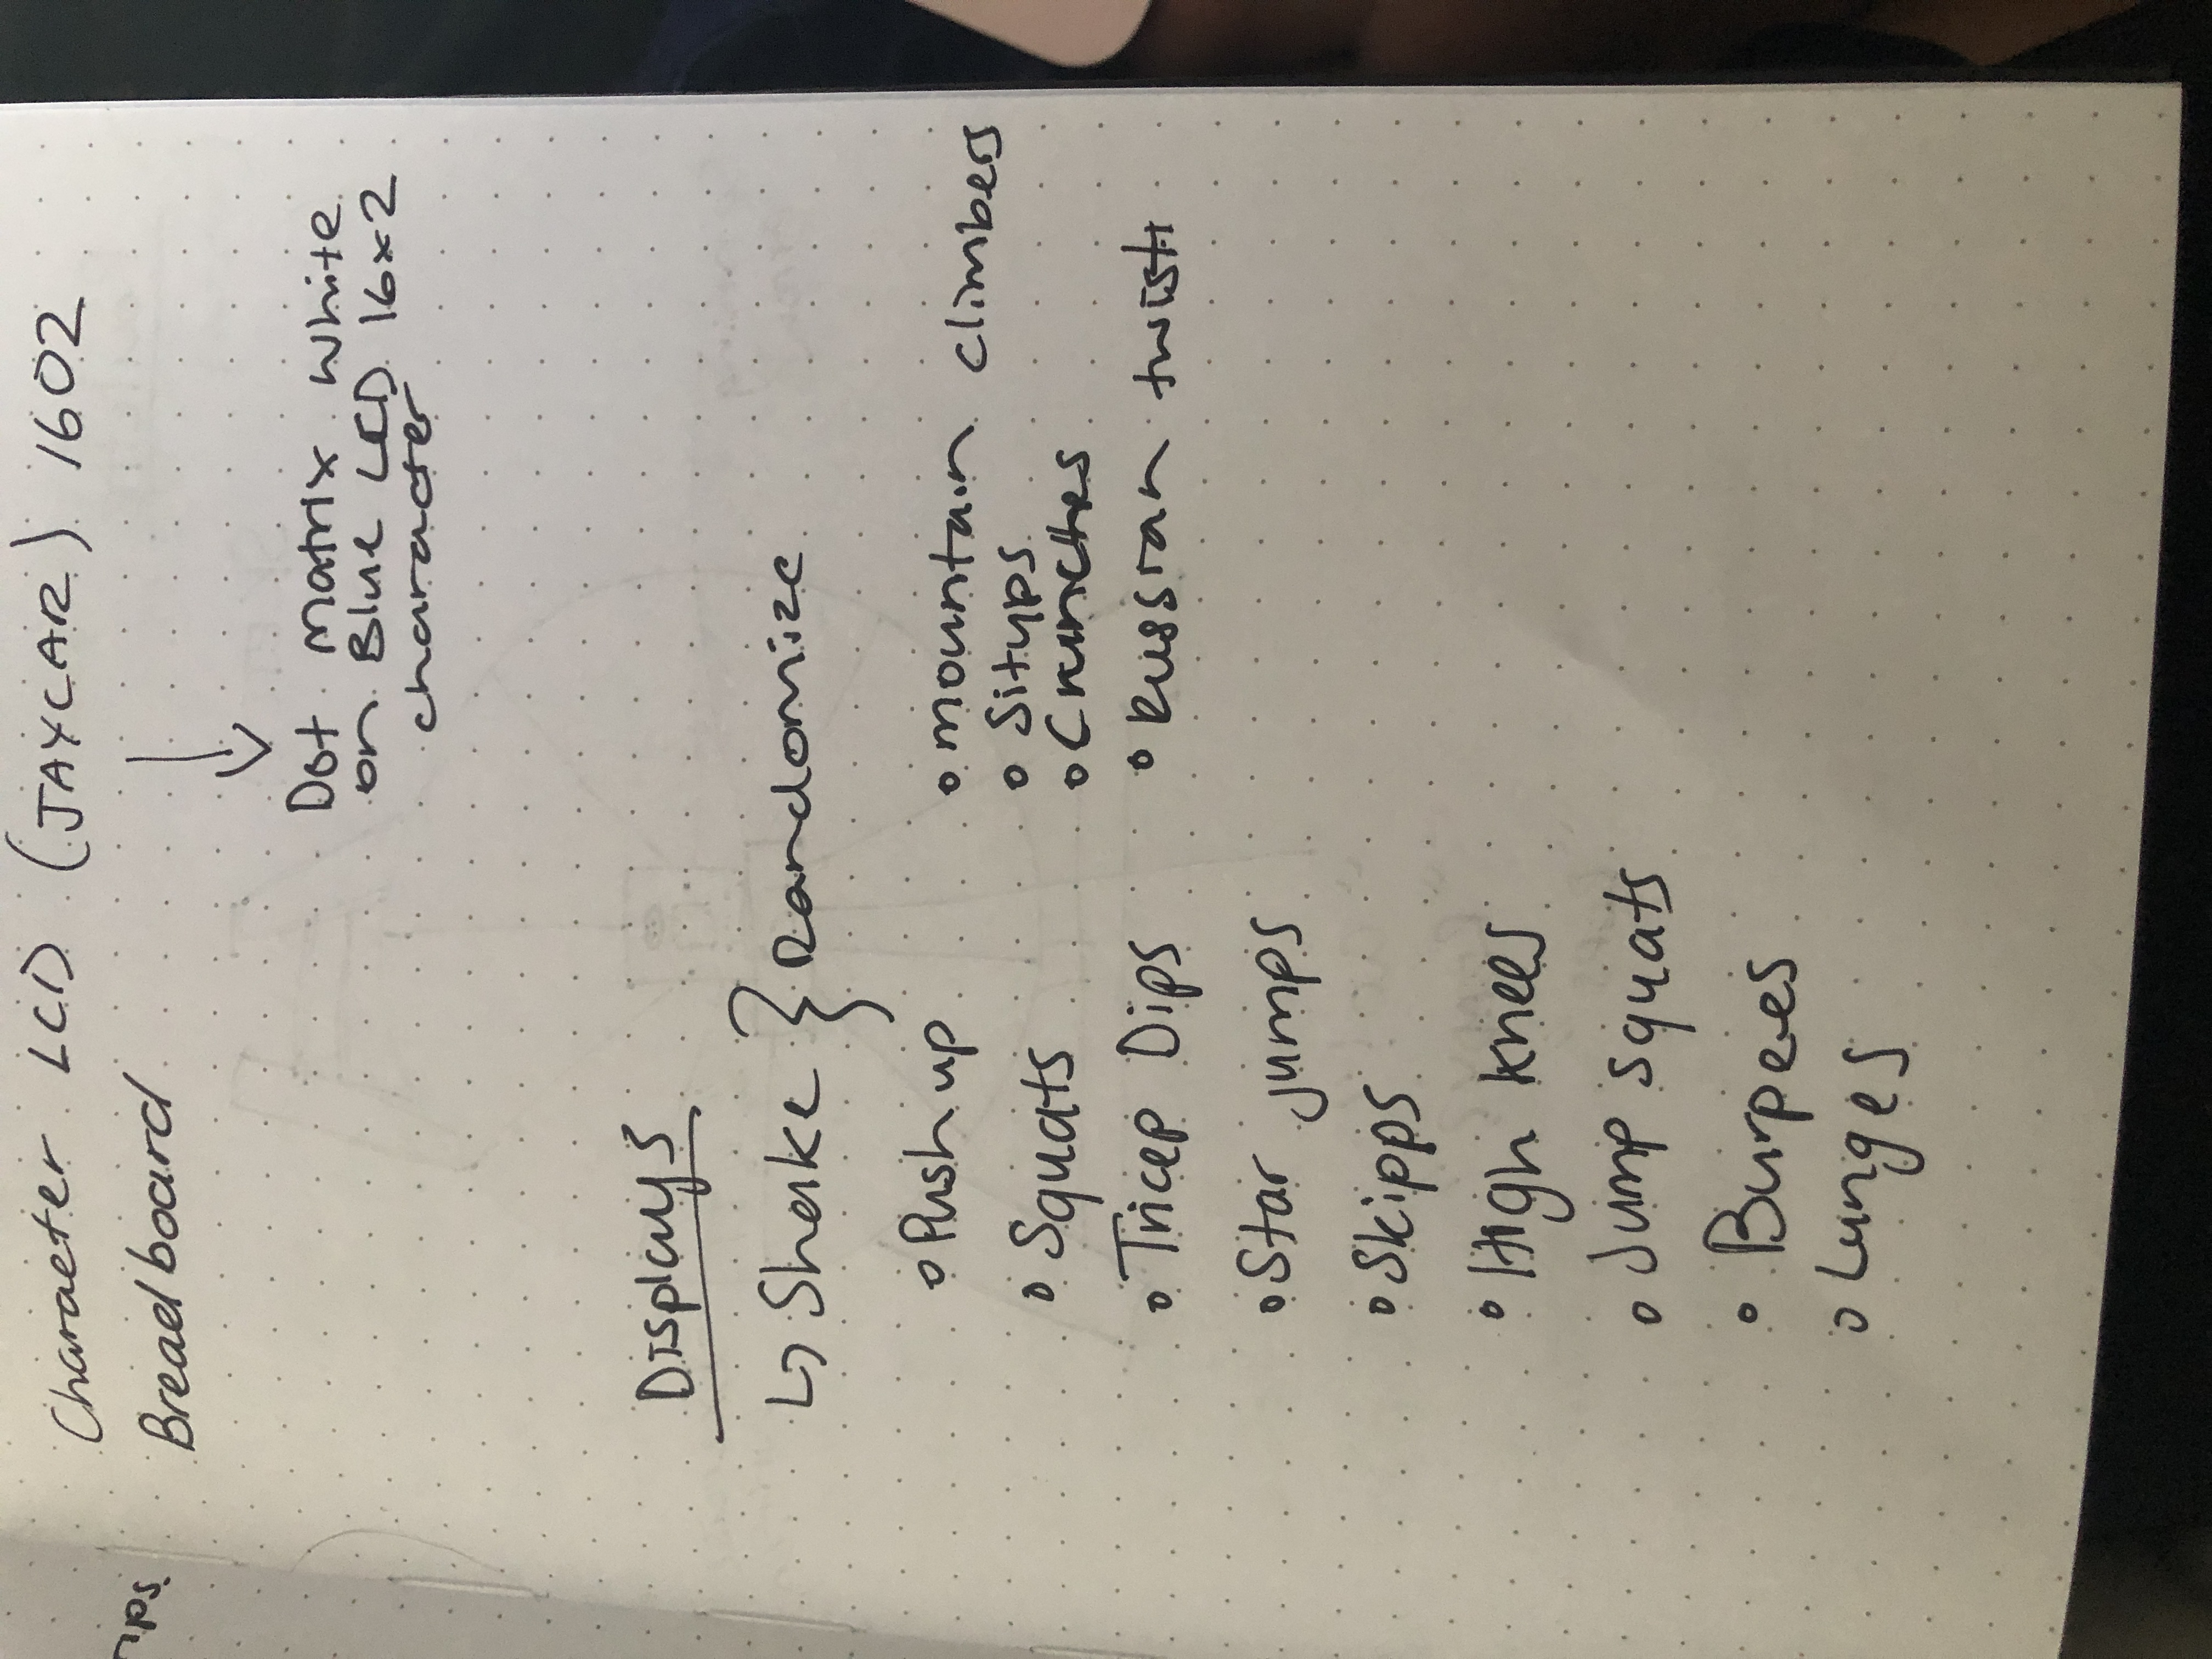 Character LCD (JAYCAR) 1602
Breadboard
Dot matrix white
on Blue LCD 16x2
character
Displays
↳ Shake } Randomize
o Push up
o Squats
o Tricep Dips
o Star jumps
o Skipps
o High knees
o Jump squats
o Burpees
o Lunges
o mountain climbers
o Situps
o Crunches
o Russian twist